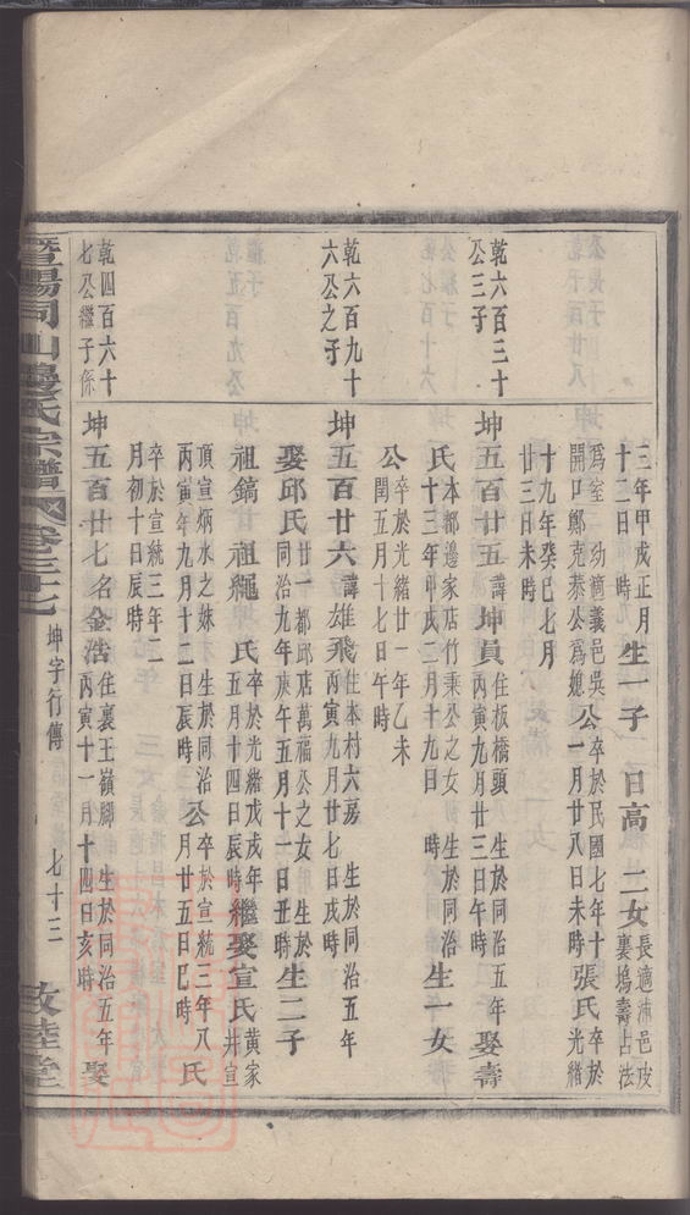 三年甲戌正月
十二日　時
生一子　日高　二女
長適沛邑皮
裏塢壽占法
爲室二幼適義邑吳
開口鄭克泰公爲媳
公
卒於民國七年十
一月廿八日未時
張氏
卒於
光緒
十九年癸巳七月
廿三日未時
乾六百三十
公三子
坤五百廿五
諱
坤員
住板橋頭　生於同治五年
丙寅九月廿三日午時
娶壽
氏
本都邊家店竹秉公之女　生於同治
十三年甲戌二月十九日　時
生一女
公
卒於光緒廿一年乙未
閏五月十七日午時
乾六百九十
六公之子
坤五百廿六
諱
雄飛
住本村六房　生於同治五年
丙寅九月廿七日戌時
娶邱氏
廿一都邱店萬福公之女　生於
同治九年庚午五月十一日丑時
生二子
祖鎬　祖繩　氏
卒於光緒戊戌年
五月十四日辰時
繼娶宣氏
黃家
井宣
頂宣炳水之妹　生於同治
丙寅年九月十二日辰時
公
卒於宣統三年八
月廿五日巳時
氏
卒於宣統三年二
月初十日辰時
乾四百六十
七公繼子係
坤五百廿七
名
金浩
住裏王嶺腳　生於同治五年
丙寅十一月十四日亥時
娶
暨陽同山邊氏宗譜
卷三十七
坤字行傳
七十三
敦睦堂